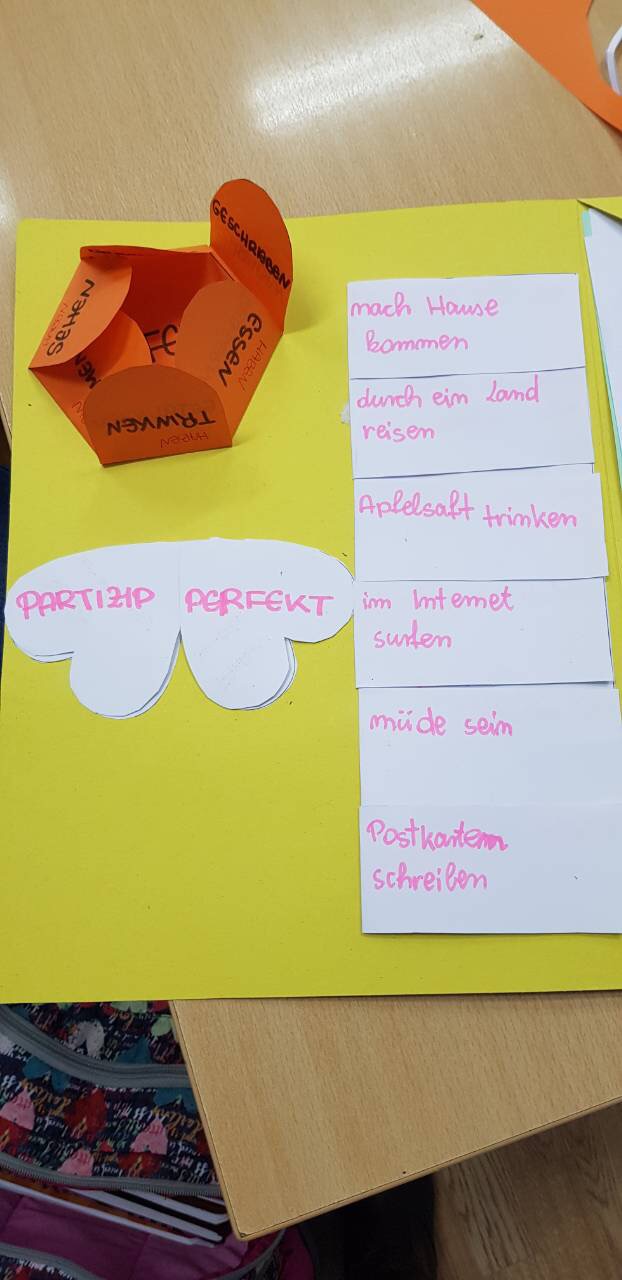 GESCHRIEBEN
SEHEN
HABEN
ESSEN
HABEN
TRINKEN
HABEN
nach Hause
kommen
durch ein Land
reisen
Apfelsaft trinken
PARTIZIP PERFEKT
im Internet
surfen
müde sein
Postkarten
schreiben